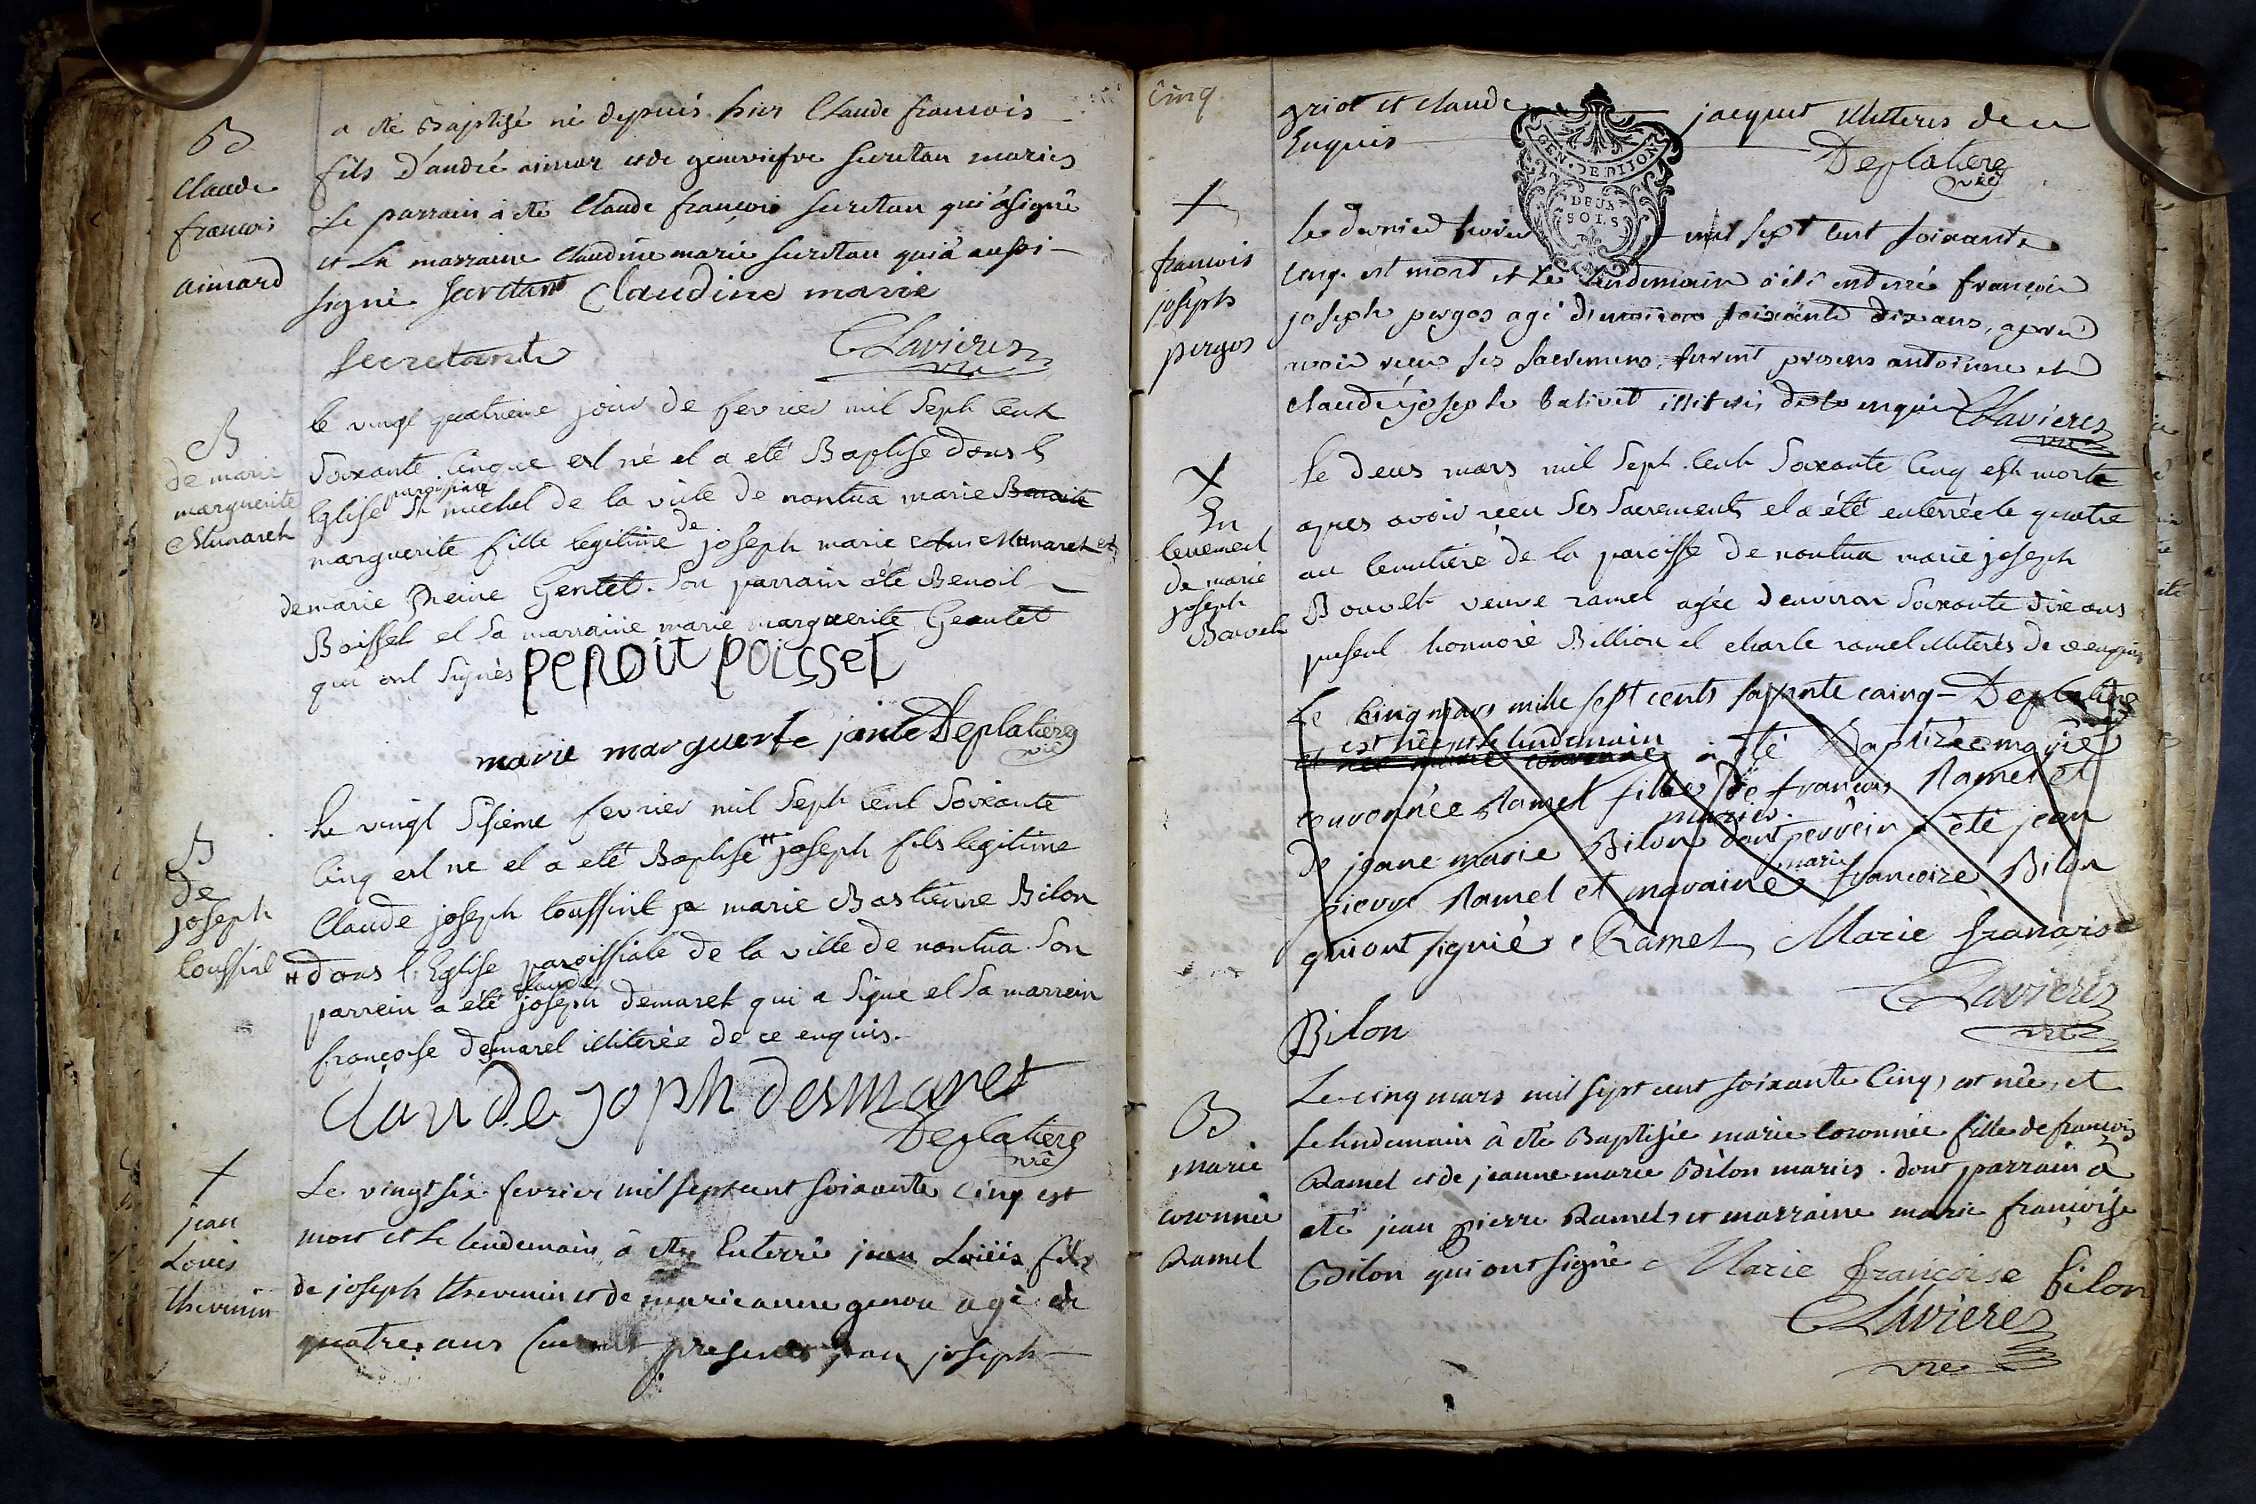 B
Claude
francois
aimard
a été Baptisé né depuis hier Claude francois
fils d'andré aimar et de geneviefve secretan mariés
Le parrain à été Claude françois secretan qui à signé
et La marraine Claudine marie secretan qui à aussi
signé Secretant Claudine marie
Secretante Clavieres vre
B
de marie
marguerite
Munaret
le vingt quatrieme jour de fevrier mil Sept Cent
Soixante Cinque est né et a eté Baptisé dans l
Eglise paroissiale St michel de la ville de nantua marie Benoite
marguerite fille legitime de joseph marie Munaret et
de marie Preine Gentet. Son parrain a été Benoit
Boisset et Sa marraine marie marguerite Geantet
qui ont signés penoit poisset
marie marguerite jante Deplatiere vie
B
de
joseph
toussint
Le vingt Sisieme fevrier mil Sept cent Soixante
Cinq est ne et a eté Baptisé # joseph fils legitime
Claude joseph toussint marie Bastienne Bilon
# dans l'Eglise paroissiale de la ville de nantua. Son
parrein a eté claude joseph demaret qui a signe et Sa marrein
françoise desmaret illiterée de ce enquis.
claude joph desmaret
Deplatiere vie
+
jean
Louis
thevenin
Le vingt six fevrier mil sept cent soixante Cinq est
mort et Le lendemain à eté Enterré jean Loüis fils
de joseph thevenin et de marie anne genou agé de
quatre ans furent presents jean joseph
Cinq
griot et claude jacquet illiteres de ce
Enquis Deplatiere vie
GEN. DE DIJON
DEUX
SOLS
+
francois
joseph
pergos
Le dernier fevrier mil sept cent soixante
cinq est mort et Le Lendemain à été enterré françois
joseph pergos agé d'environ soixante dix ans, apres
avoir reçu ses sacremens, furent presens antoinne et
claude joseph balivet illiterés de ce enquis Clavieres vre
+
En
terrement
de marie
joseph
Bouvet
Le deus mars mil Sept Cent Soixante Cinq est morte
apres avoir reçu Ses Sacrements et a été enterrée le quatre
au Cemitiere de la paroisse de nantua marie joseph
Bouvet veuve ramel agée d'environ Soixante dix ans
present honnoré Billion et charle ramel illiterés de ce enquis
Le cinq mars mille sept cents soisente cainq – Deplatiere
est née et le lendemain
et née marie couronnée a été Baptizée marie
couronnée Ramel fille de francois Ramel et
de jeane marie Bilon mariés dont perrein a été jean
pierre Ramel et maraine marie francoize Bilon
qui ont signié Ramel Marie francoise
Bilon Clavieres vre
B
marie
coronnée
Ramel
Le cinq mars mil sept cent soixante Cinq, est née, et
Le lendemain à été Baptisée marie coronnée fille de françois
Ramel et de jeanne marie Bilon mariés. dont parrain à
eté jean pierre Ramel, et marraine marie françoise
Bilon qui ont signé Marie françoise bilon
Clavieres
vre